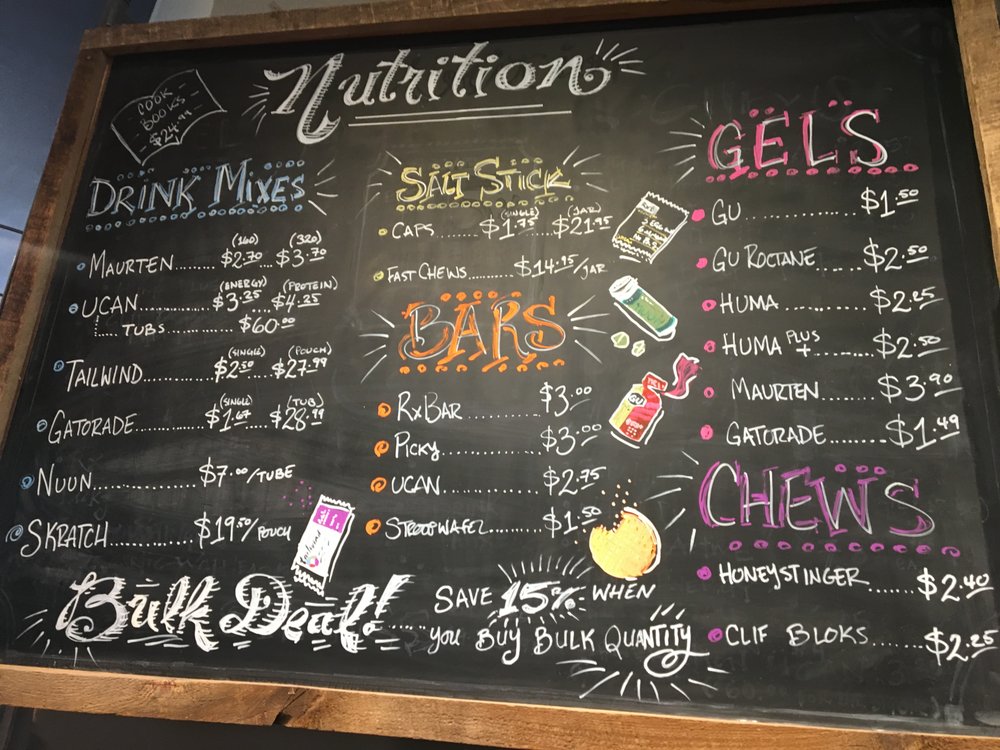 Nutrition
COOK
BOOKS
$24.99
DRINK MIXES
(160) (320)
MAURTEN......... $2.70 ... $3.70
(ENERGY) (PROTEIN)
UCAN............ $3.25 .... $4.25
TUBS............ $60.00
(SINGLE) (POUCH)
TAILWIND............ $2.50 ... $27.99
(SINGLE) (TUB)
GATORADE......... $1.67 .... $28.99
NUUN............... $7.00/TUBE
SKRATCH............. $19.50/POUCH
SALT STICK
(SINGLE) (JAR)
CAPS....... $1.75 .... $21.95
FAST CHEWS.......... $14.95/JAR
BARS
RXBAR............ $3.00
PICKY............... $3.00
UCAN.............. $2.75
STROOPWAFEL....... $1.50
GU
GELS
GU............... $1.50
GU ROCTANE...... $2.50
HUMA........... $2.25
HUMA PLUS +......... $2.50
MAURTEN $3.90
GATORADE........ $1.49
CHEWS
HONEYSTINGER ...... $2.40
CLIF BLOKS ....... $2.25
Bulk Deal!..... SAVE 15% WHEN
you BUY BULK QUANTITY